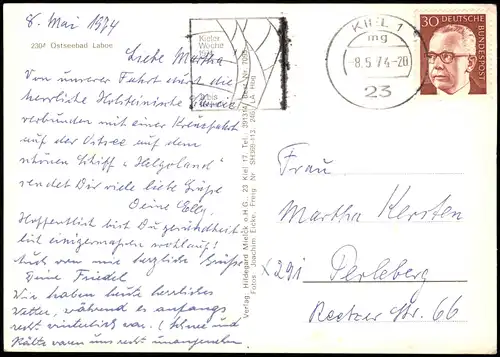 8. Mai 1974
2304 Ostseebad Laboe
Liebe Martha
Von unserer Fahrt durch die
herrliche Holsteinische Schweiz
verbunden mit einer Kreuzfahrt
auf der Ostsee auf dem
schönen Schiff "Helgoland"
sendet Dir viele liebe Grüße
Deine Elly.
Hoffentlich bist Du gesundheitlich
bist einigermaßen wohlauf!
Auch von mir herzliche Grüße
Deine Friedel
Wir haben heute herrliches
Wetter, während es anfangs
recht winterlich war. (Schnee und
Kälte waren uns recht unangenehm.
Verlag Hildegard Mielck o.H.G. 23 Kiel 17, Tel.
Fotos Joachim Eicke, Freig. Nr. SH
Kieler
Woche
KIEL 1
mg
-8.5.74-20
23
30 DEUTSCHE
BUNDESPOST
Frau
Martha Kersten
x 291 Perleberg
Str. 66